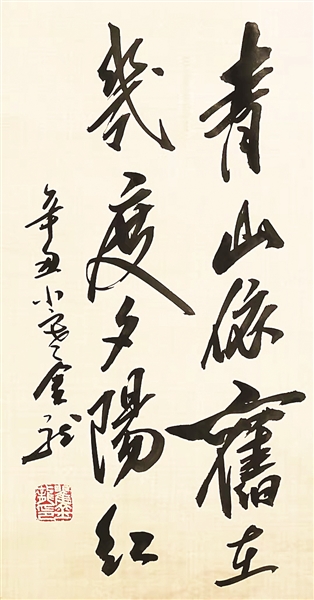 青山依舊在
幾度夕陽紅
辛丑小寒金龍